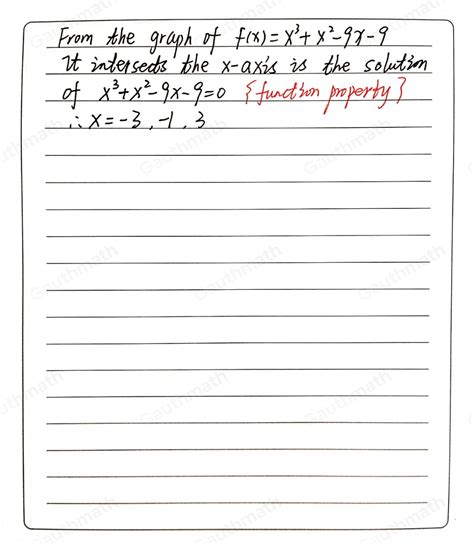 From the graph of f(x) = x³ + x² - 9x - 9
It intersects the x-axis is the solution
of x³ + x² - 9x - 9 = 0 {function property}
∴ x = -3, -1, 3